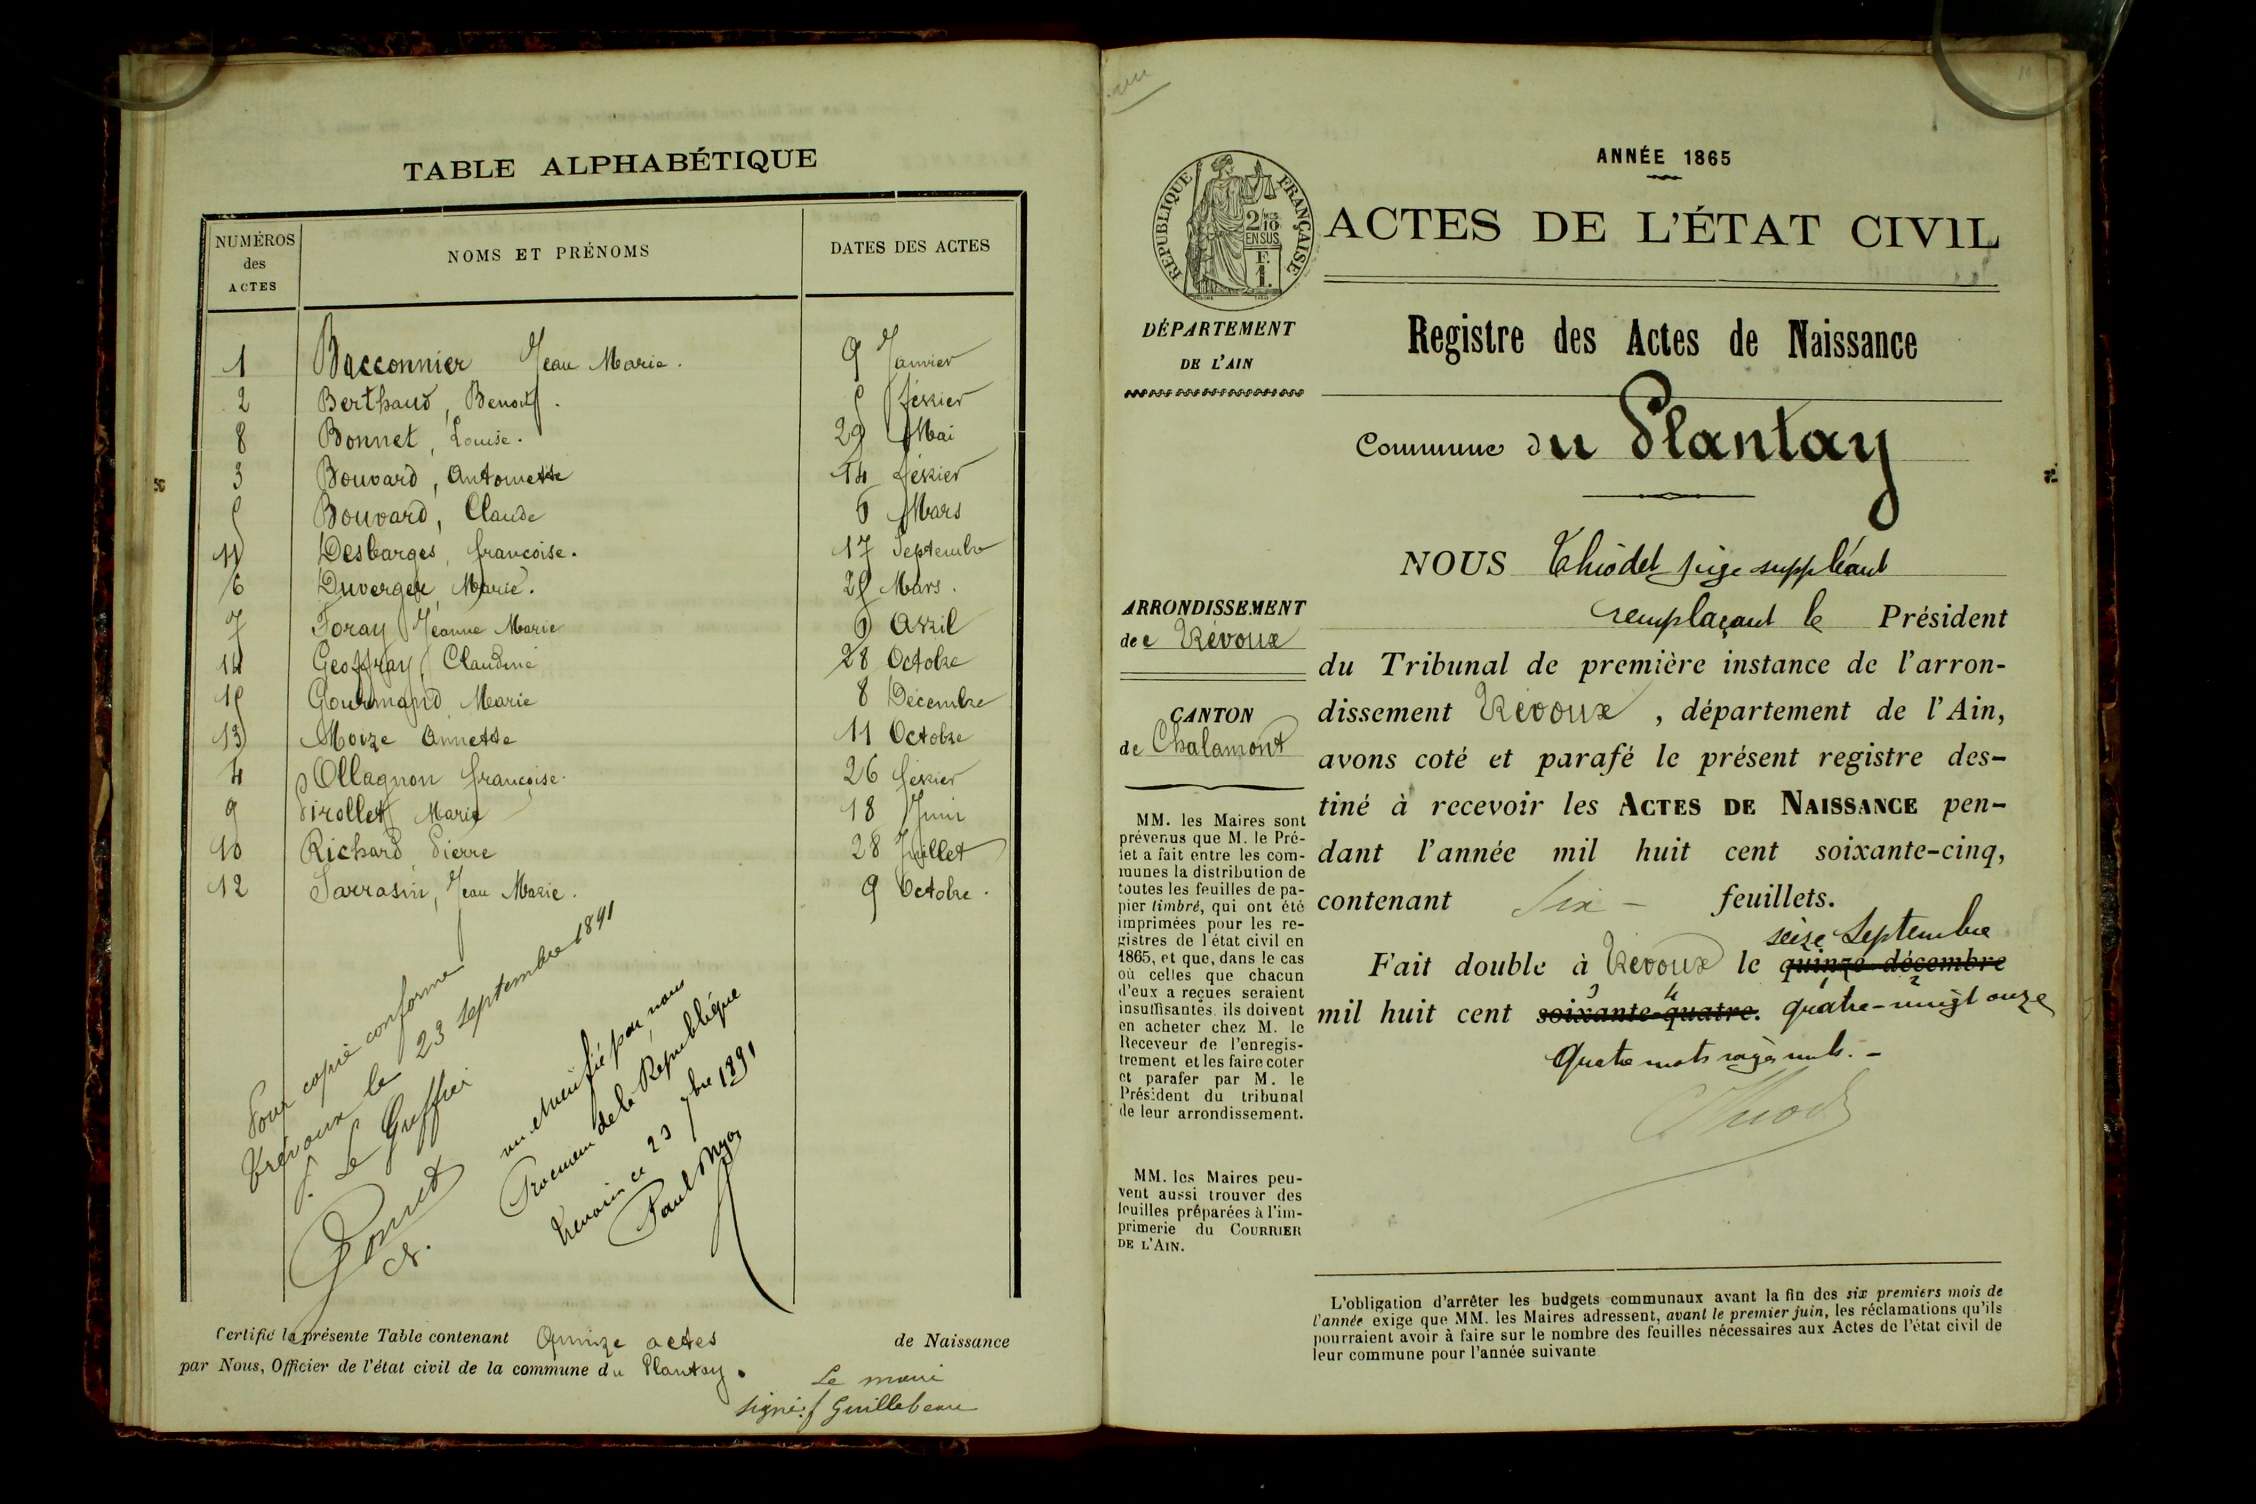 TABLE ALPHABÉTIQUE
NUMÉROS des ACTES NOMS ET PRÉNOMS DATES DES ACTES
1 Bacconnier Jean Marie. 9 Janvier
2 Berthaud, Benoit. 5 février
8 Bonnet, Louise. 29 Mai
3 Bouvard, Antoinette 14 février
5 Bouvard, Claude 6 Mars
11 Desbarges, françoise. 17 Septembre
6 Duverger, Marie. 25 Mars.
7 Foray Jeanne Marie 6 Avril
14 Geoffray, Claudine 28 Octobre
15 Gourmand Marie 8 Décembre
13 Moize Annette 11 Octobre
4 Ollagnon françoise. 26 février
9 Pirollet Marie 18 Juin
10 Richard Pierre 28 Juillet
12 Sarrasin, Jean Marie. 9 Octobre.
Pour copie conforme
Trévoux le 23 septembre 1891
Le Greffier
vu et vérifié par nous
Procureur de la République
Trévoux ce 23 7bre 1891
Paul
Certifié la présente Table contenant Quinze actes de Naissance
par Nous, Officier de l'état civil de la commune du Plantay.
Le maire
signé: Guillebeau
ANNÉE 1865
RÉPUBLIQUE FRANÇAISE
2/10 EN SUS
F. 1.
ACTES DE L'ÉTAT CIVIL
DÉPARTEMENT
DE L'AIN
Registre des Actes de Naissance
Commune du Plantay
NOUS Thiodet juge suppléant
remplaçant le Président
ARRONDISSEMENT
de Trévoux
du Tribunal de première instance de l'arron-
dissement Trévoux, département de l'Ain,
CANTON
de Chalamont
avons coté et parafé le présent registre des-
tiné à recevoir les ACTES DE NAISSANCE pen-
dant l'année mil huit cent soixante-cinq,
contenant Six - feuillets.
seize septembre
Fait double à Trévoux le quinze décembre
mil huit cent soixante-quatre. quatre-vingt onze
Quatre mots rayés nuls. -
MM. les Maires sont
prévenus que M. le Pré-
fet a fait entre les com-
munes la distribution de
toutes les feuilles de pa-
pier timbré, qui ont été
imprimées pour les re-
gistres de l'état civil en
1865, et que, dans le cas
où celles que chacun
d'eux a reçues seraient
insuffisantes, ils doivent
en acheter chez M. le
Receveur de l'enregis-
trement et les faire coter
et parafer par M. le
Président du tribunal
de leur arrondissement.
MM. les Maires peu-
vent aussi trouver des
feuilles préparées à l'im-
primerie du COURRIER
DE L'AIN.
L'obligation d'arrêter les budgets communaux avant la fin des six premiers mois de
l'année exige que MM. les Maires adressent, avant le premier juin, les réclamations qu'ils
pourraient avoir à faire sur le nombre des feuilles nécessaires aux Actes de l'état civil de
leur commune pour l'année suivante